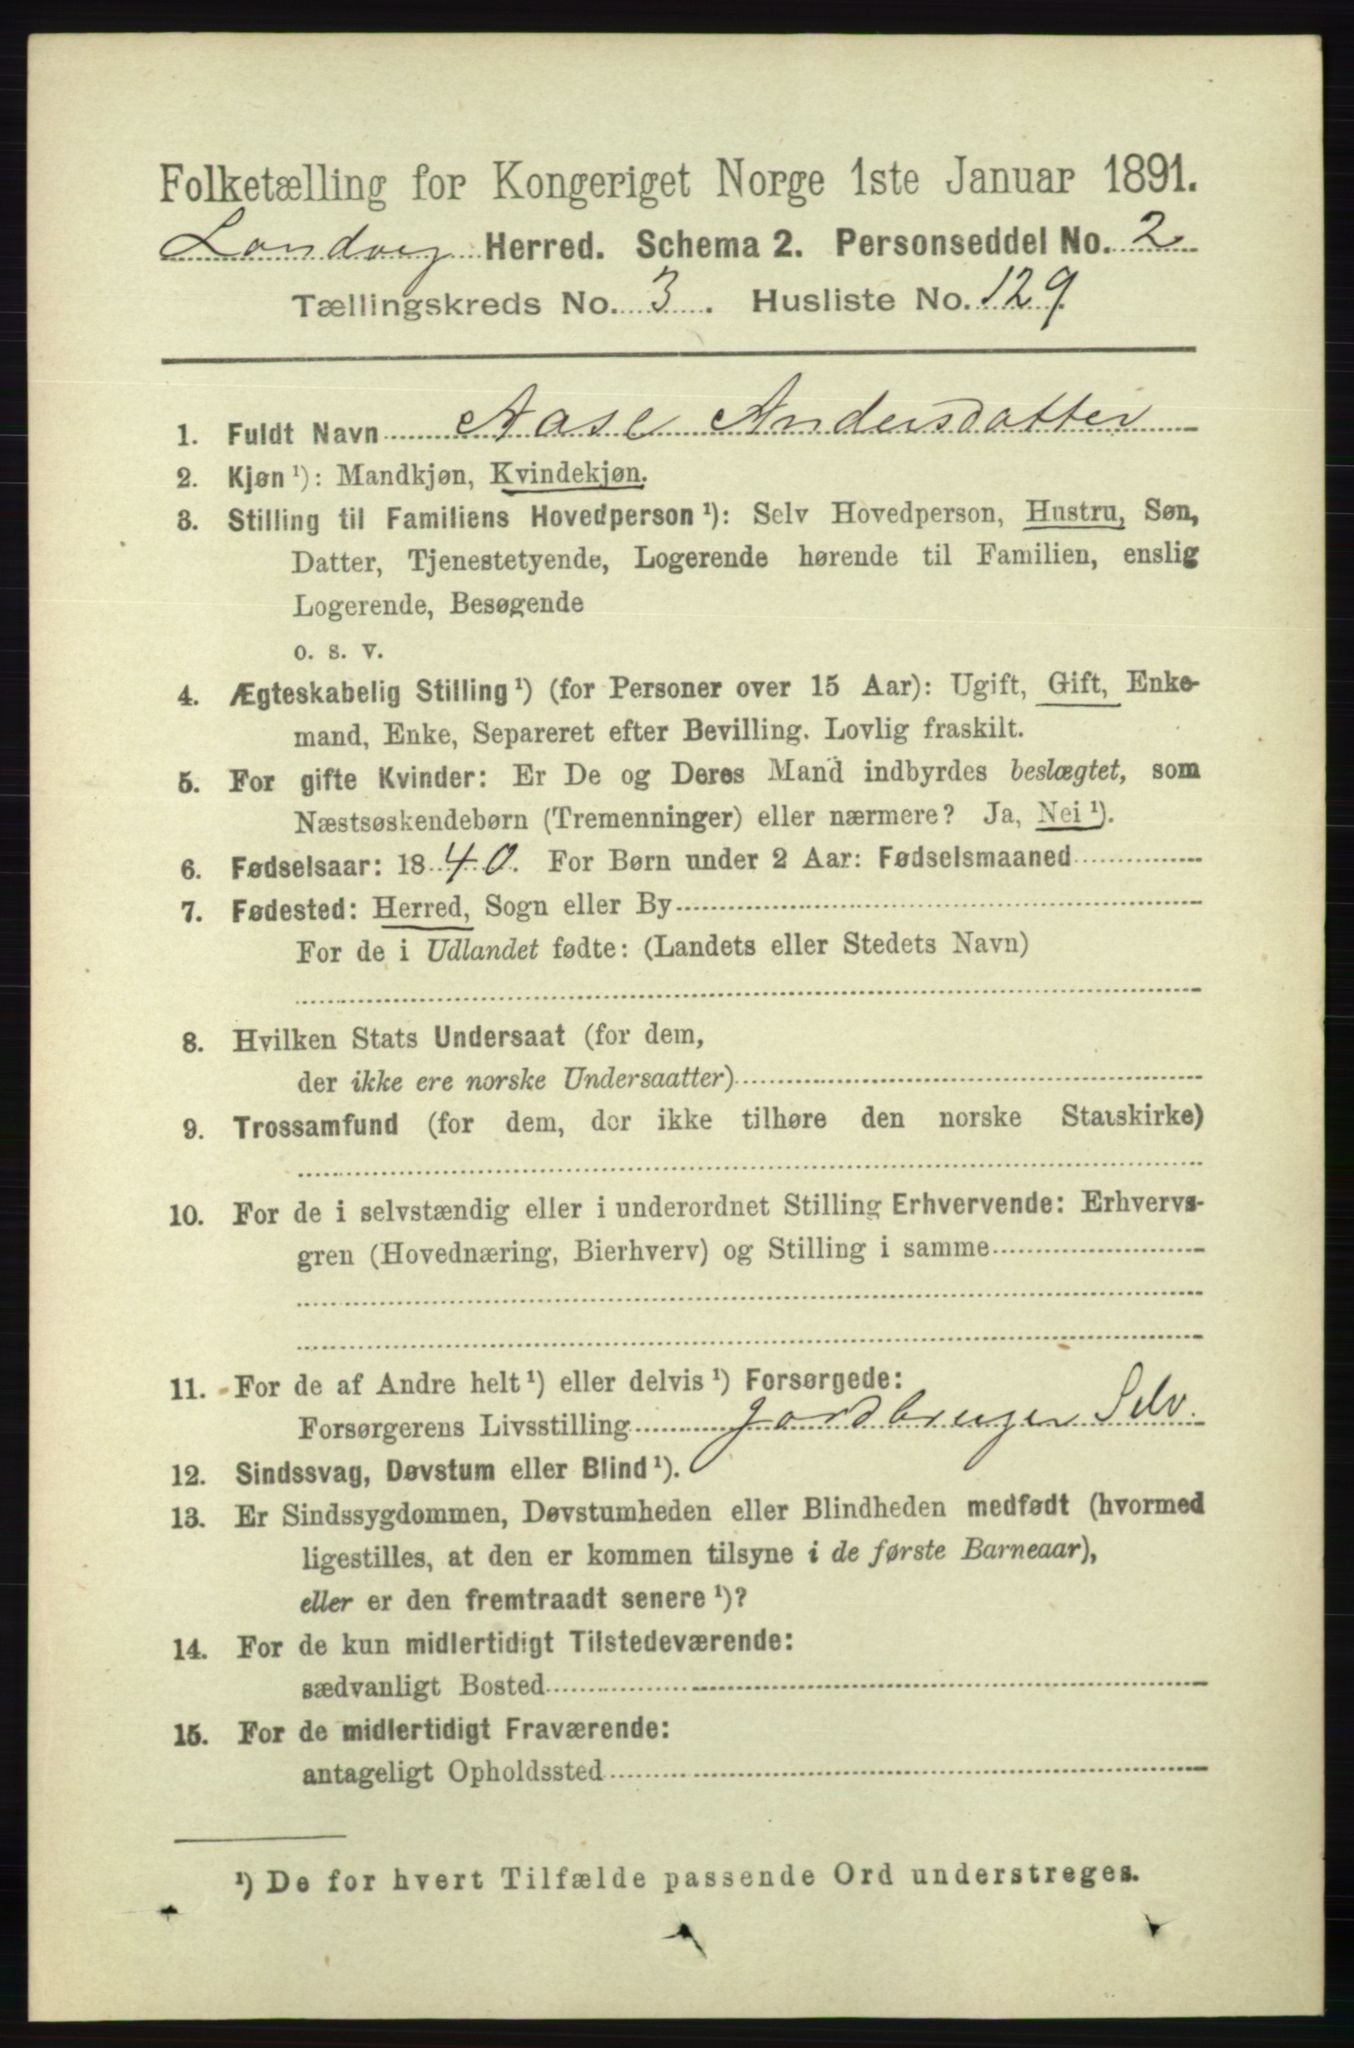 Folketælling for Kongeriget Norge 1ste Januar 1891.
Landvig Herred. Schema 2. Personseddel No. 2
Tællingskreds No. 3. Husliste No. 129.
1. Fuldt Navn Aase Andersdatter
2. Kjøn ¹): Mandkjøn, Kvindekjøn.
3. Stilling til Familiens Hovedperson ¹): Selv Hovedperson, Hustru, Søn,
Datter, Tjenestetyende, Logerende hørende til Familien, enslig
Logerende, Besøgende
o. s. v.
4. Ægteskabelig Stilling ¹) (for Personer over 15 Aar): Ugift, Gift, Enke-
mand, Enke, Separeret efter Bevilling. Lovlig fraskilt.
5. For gifte Kvinder: Er De og Deres Mand indbyrdes beslægtet, som
Næstsøskendebørn (Tremenninger) eller nærmere? Ja, Nei ¹).
6. Fødselsaar: 1840. For Børn under 2 Aar: Fødselsmaaned
7. Fødested: Herred, Sogn eller By
For de i Udlandet fødte: (Landets eller Stedets Navn)
8. Hvilken Stats Undersaat (for dem,
der ikke ere norske Undersaatter)
9. Trossamfund (for dem, der ikke tilhøre den norske Statskirke)
10. For de i selvstændig eller i underordnet Stilling Erhvervende: Erhvervs-
gren (Hovednæring, Bierhverv) og Stilling i samme
11. For de af Andre helt ¹) eller delvis ¹) Forsørgede:
Forsørgerens Livsstilling Jordbruger Selv.
12. Sindssvag, Døvstum eller Blind ¹).
13. Er Sindssygdommen, Døvstumheden eller Blindheden medfødt (hvormed
ligestilles, at den er kommen tilsyne i de første Barneaar),
eller er den fremtraadt senere ¹)?
14. For de kun midlertidigt Tilstedeværende:
sædvanligt Bosted
15. For de midlertidigt Fraværende:
antageligt Opholdssted
¹) De for hvert Tilfælde passende Ord understreges.